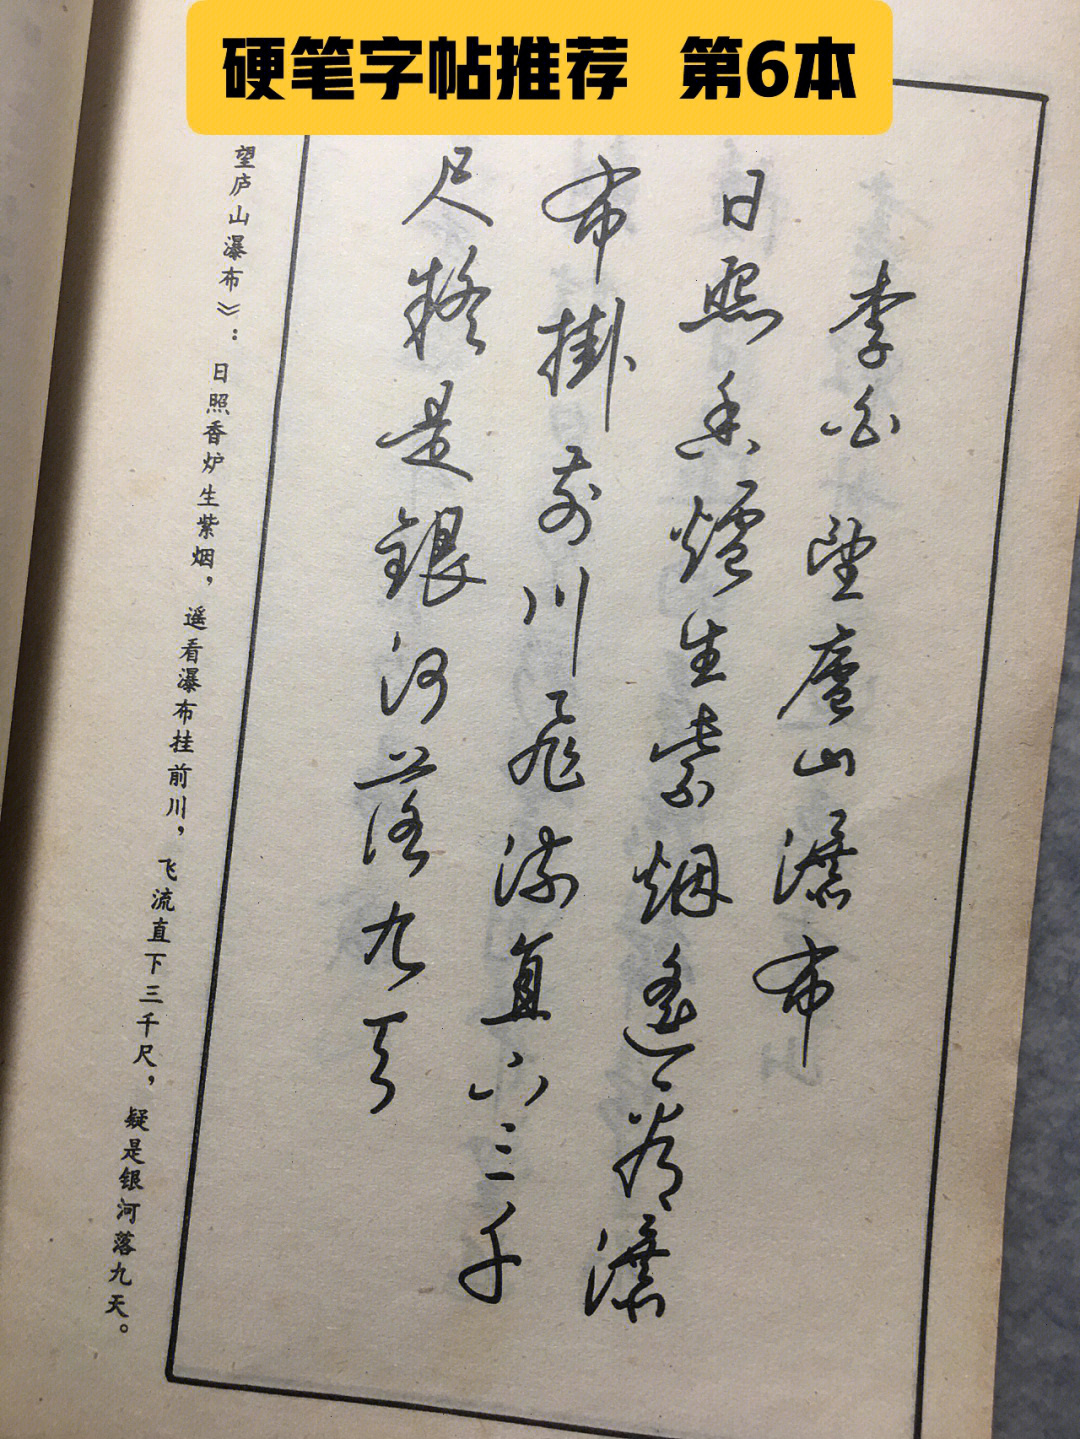 硬笔字帖推荐 第6本
李白望廬山瀑布
日照香爐生紫烟遙看瀑
布掛前川飛流直下三千
尺疑是銀河落九天
望庐山瀑布》：日照香炉生紫烟，遥看瀑布挂前川，飞流直下三千尺，疑是银河落九天。